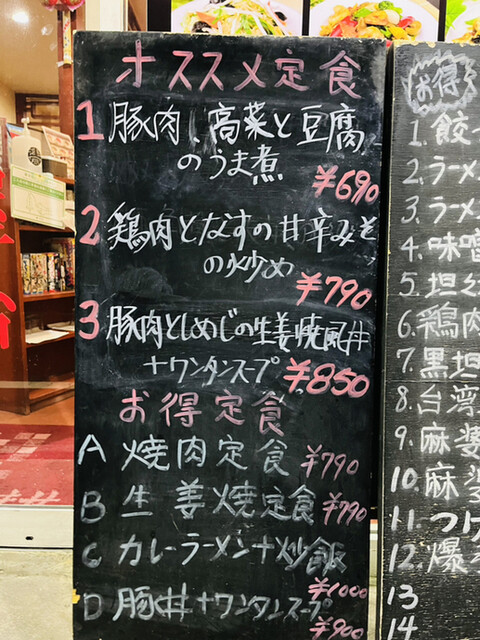 オススメ定食
1 豚肉、高菜と豆腐
のうま煮
¥690
2 鶏肉となすの甘辛みそ
の炒め
¥790
3 豚肉としめじの生姜焼風丼
+ワンタンスープ ¥850
お得定食
A 焼肉定食 ¥790
B 生姜焼定食 ¥790
C カレーラーメン+炒飯
¥1000
D 豚丼+ワンタンスープ
¥900
お得
1. 餃
2. ラーメ
3. ラーメ
4. 味噌
5. 坦々
6. 鶏肉
7. 黒坦
8. 台湾
9. 麻婆
10. 麻婆
11. つけ
12. 爆
13
14